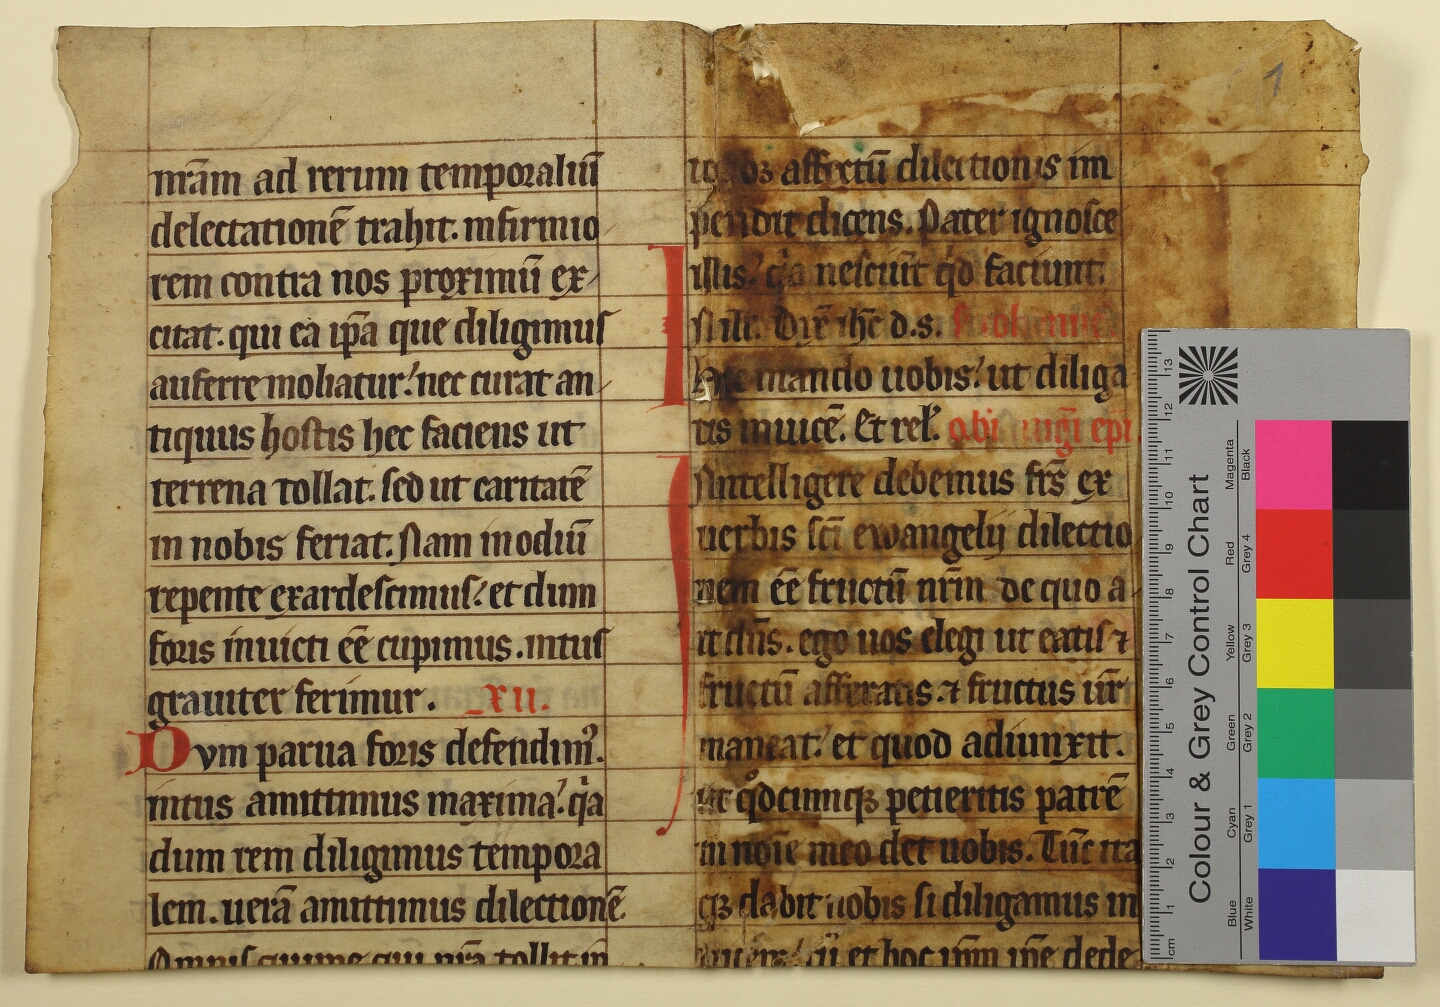 mr̄am ad rerum temporaliū
delectationē trahit. infirmio
rem contra nos proximū ex
citat. qui ea ip̄a que diligimus
auferre moliatur. nec curat an
tiquus hostis hec faciens ut
terrena tollat. sed ut caritatē
in nobis feriat. Nam in odiū
repente exardescimus. et dum
foris inuicti ēe cupimus. intus
grauiter ferimur. XII.
Dvm parua foris defendim᷒.
intus amittimus maxima. qͣa
dum rem diligimus tempora
lem. uerā amittimus dilectionē.
Omnis quippe qui nr̄a tollit in
affectū dilectionis im
pendit dicens. Pater ignosce
illis. qͣa nesciūt qd faciunt.
ih̄c d.s.
mando uobis. ut diliga
tis inuicē. Et rel̕. epi
Intelligere debemus fr̄s ex
uerbis sc̄i ewangelij dilectio
nem ēe fructū nr̄m de quo a
it dn̄s. ego uos elegi ut eatis ⁊
fructū afferatis. ⁊ fructus ur̄
maneat. et quod adiunxit.
ut qͦdcumqꝫ petieritis patrē
in noīe meo det uobis. Tūc ita
qꝫ dabit uobis si diligamus in
et hoc ip̄m īne dede
1
Colour & Grey Control Chart
Blue Cyan Green Yellow Red Magenta
White Grey 1 Grey 2 Grey 3 Grey 4 Black
cm 1 2 3 4 5 6 7 8 9 10 11 12 13